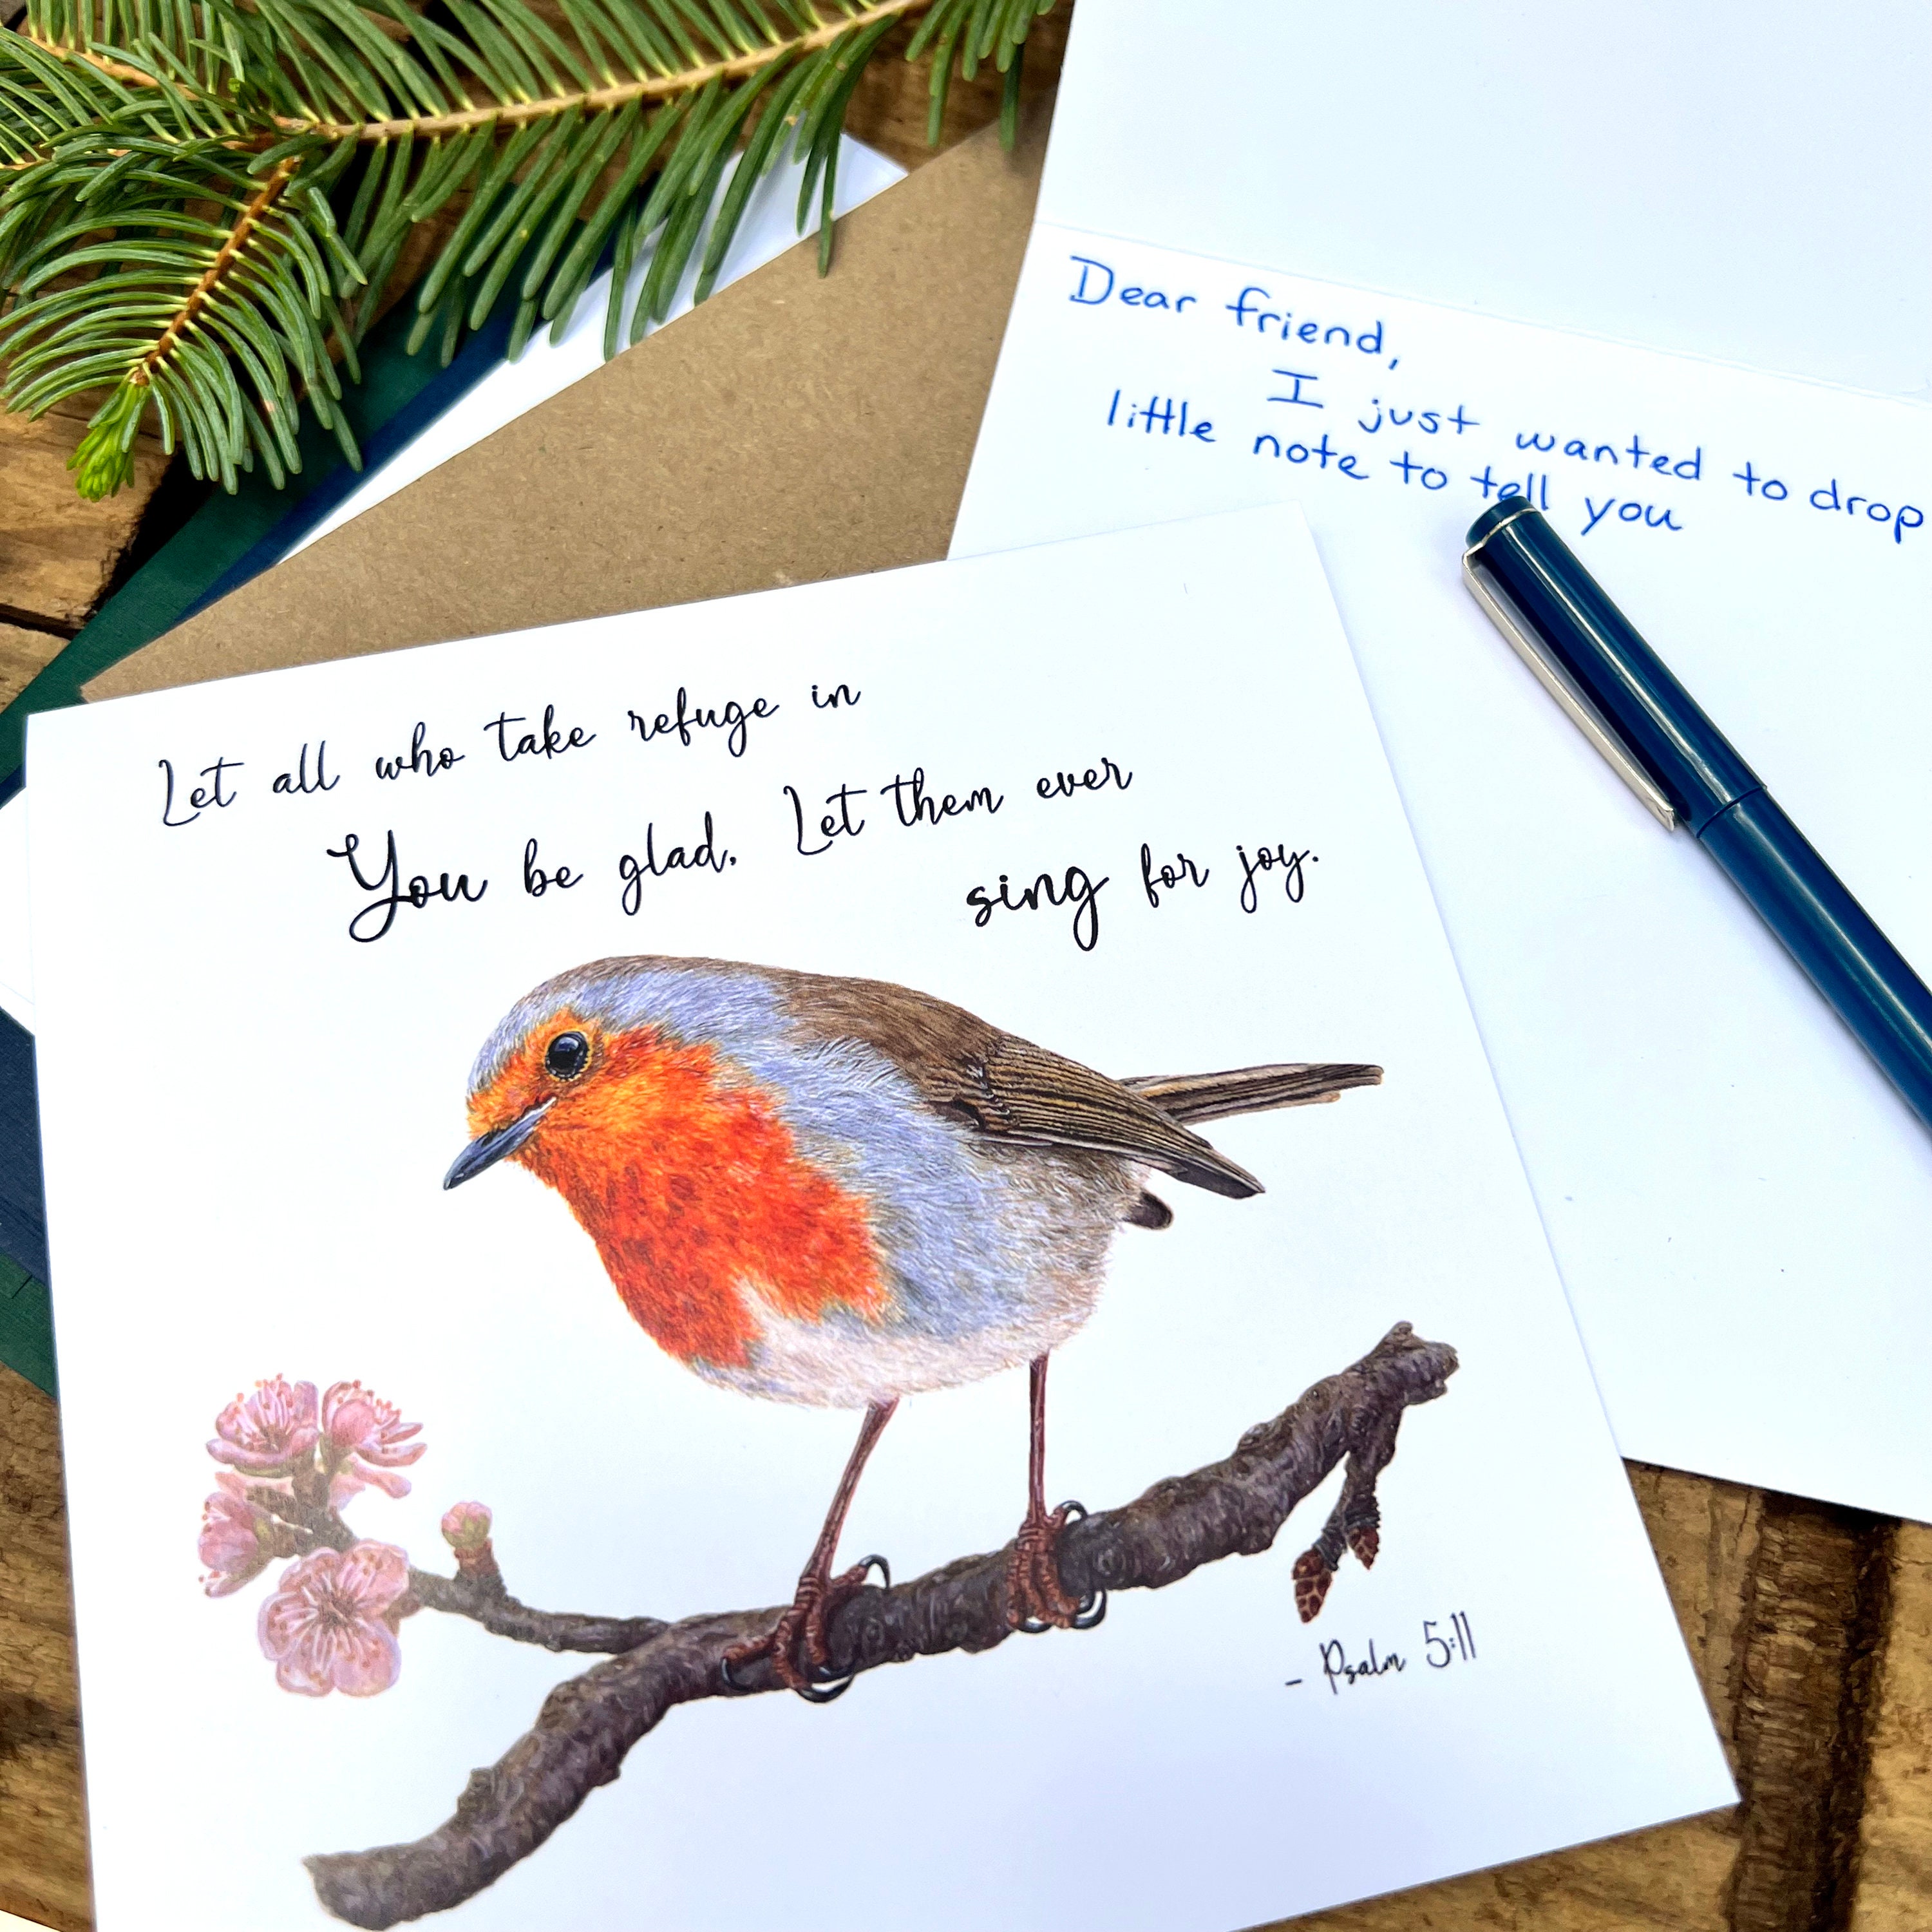 Dear friend,
I just wanted to drop
little note to tell you
Let all who take refuge in
You be glad. Let them ever
sing for joy.
- Psalm 5:11